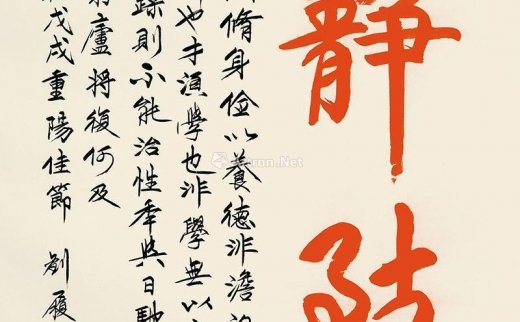 靜致
脩身儉以養德非澹
也才須學也非學無以
躁則不能治性年與日馳
廬將復何及
戊戌重陽佳節 劉履